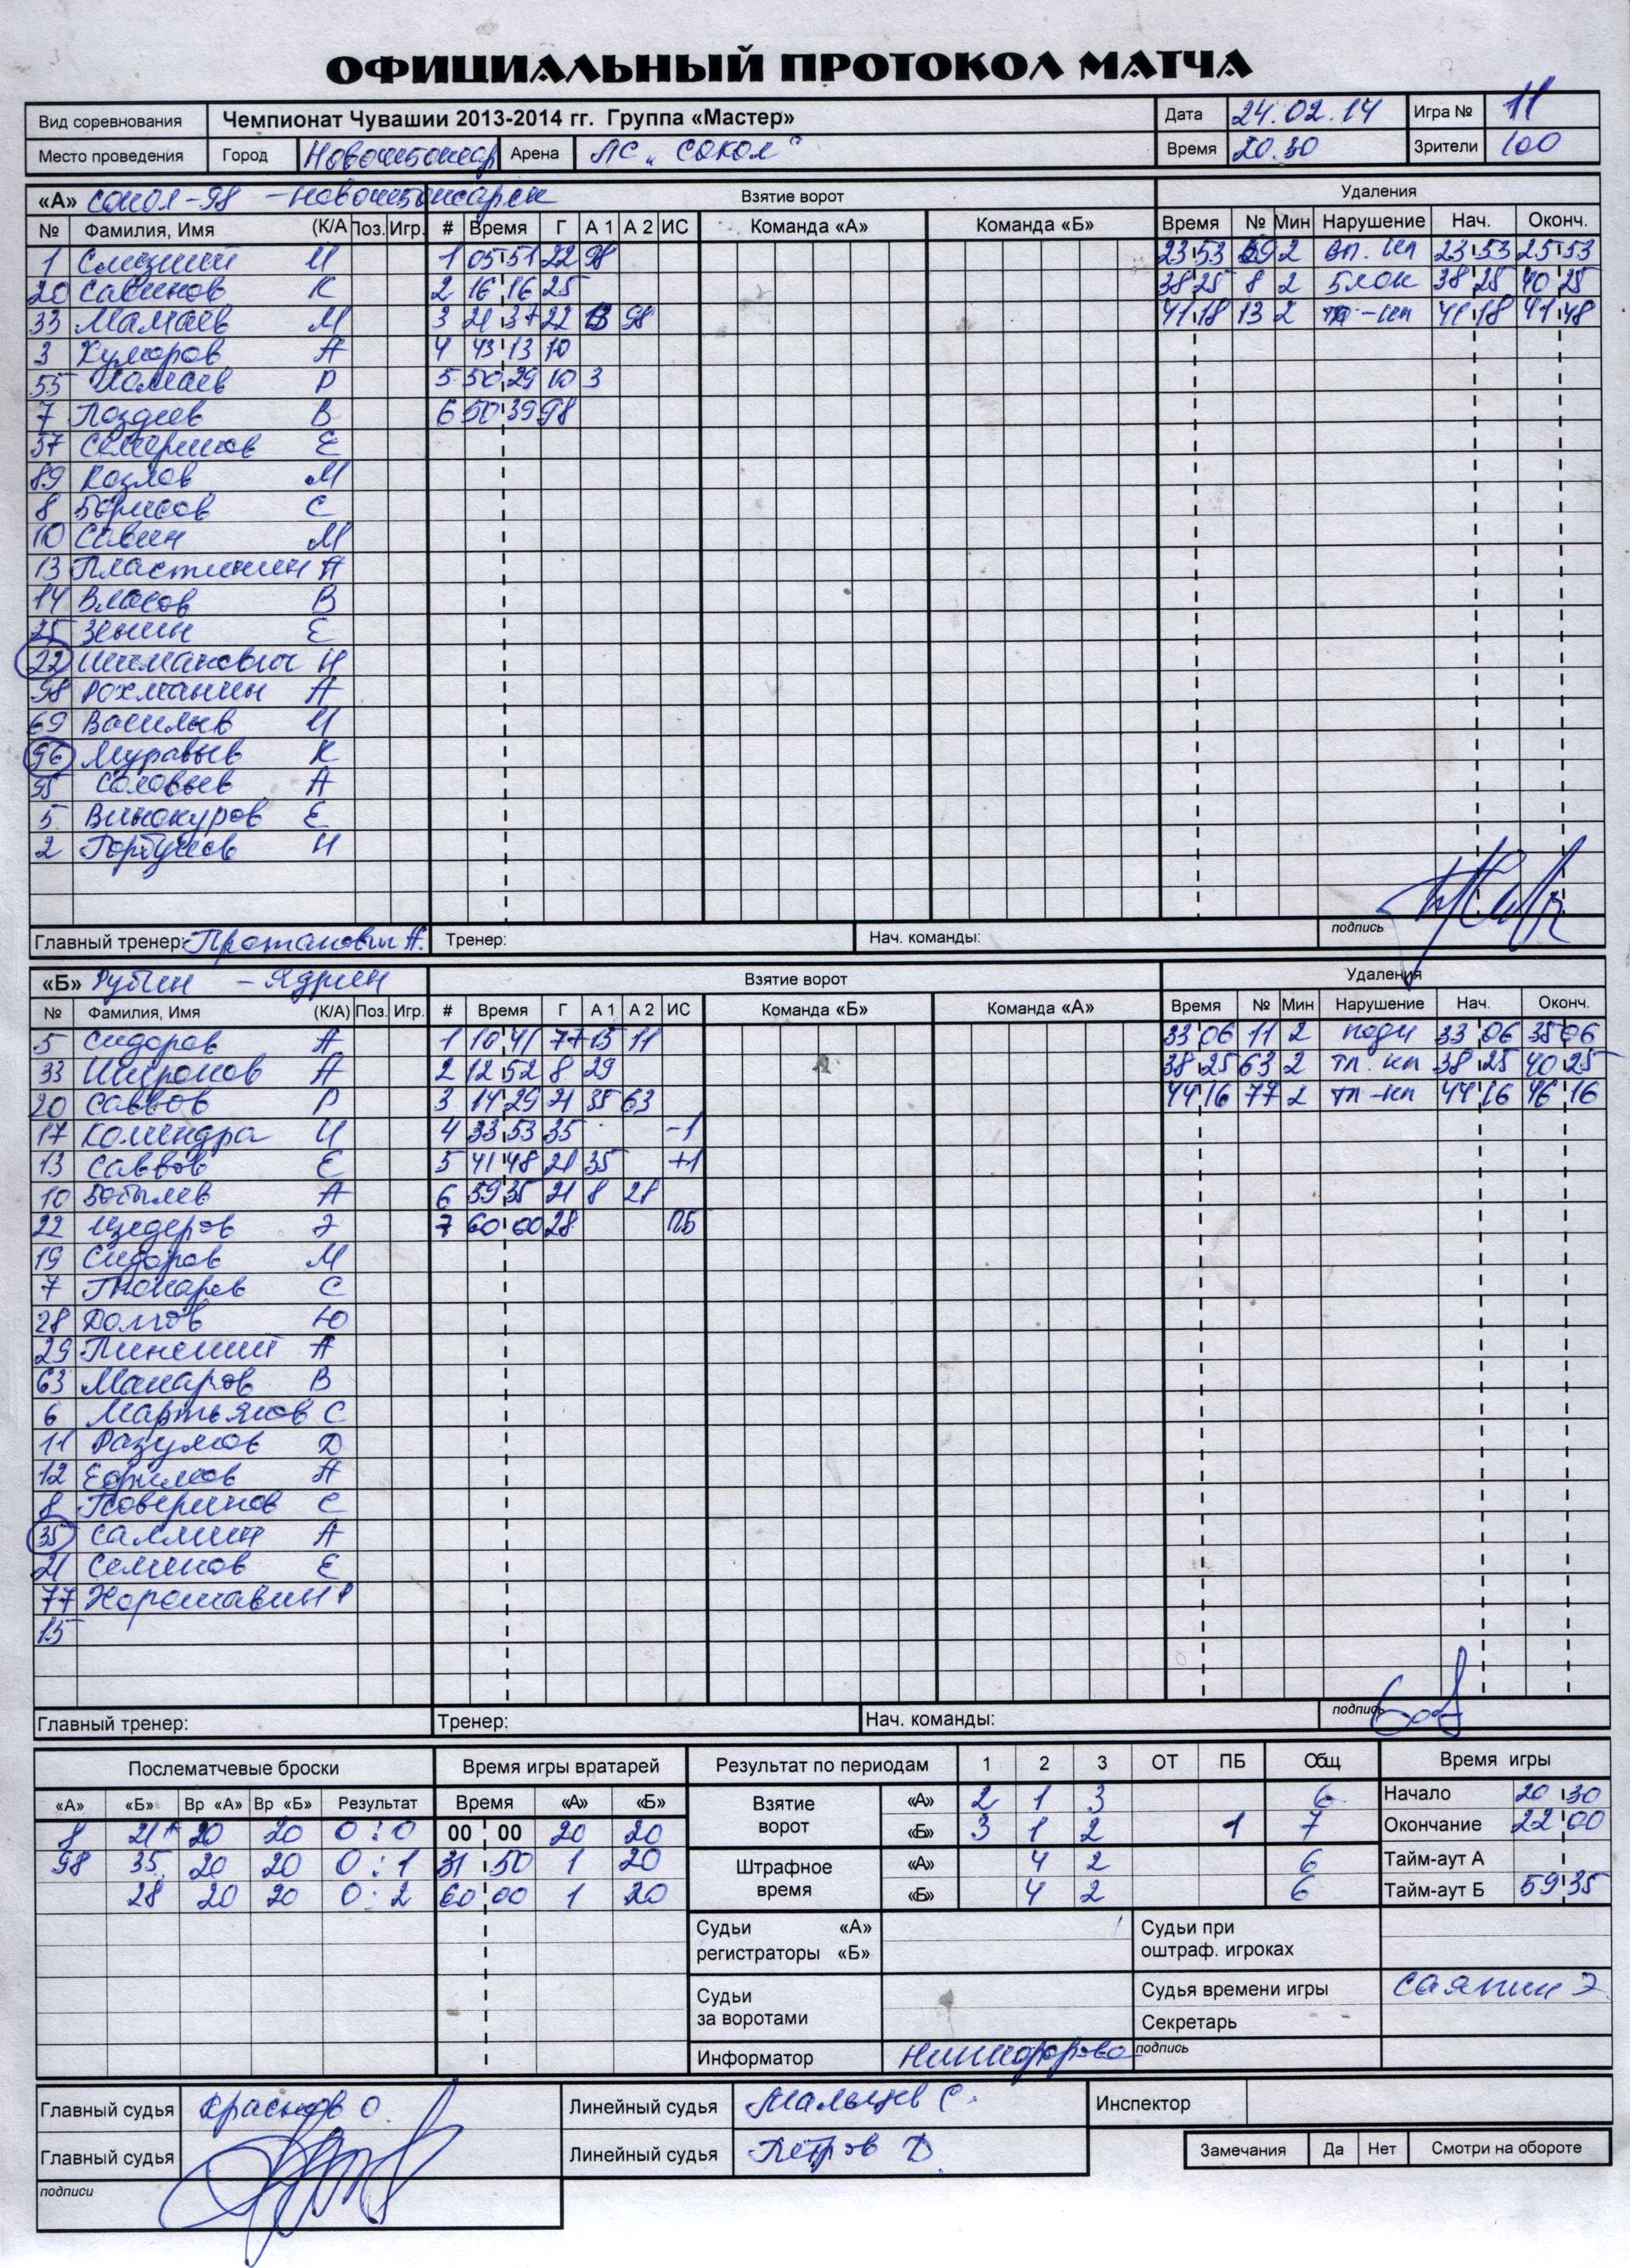 ОФИЦИАЛЬНЫЙ ПРОТОКОЛ МАТЧА
Вид соревнования Чемпионат Чувашии 2013-2014 гг. Группа «Мастер» Дата 24.02.14 Игра № 11
Место проведения Город Новочебоксар Арена ЛС „Сокол" Время 20.30 Зрители 100
«А» Сокол-98 - Новочебоксарск Взятие ворот Удаления
№ Фамилия, Имя (К/А) Поз. Игр. # Время Г А 1 А 2 ИС Команда «А» Команда «Б» Время № Мин Нарушение Нач. Оконч.
1 И 1 05 51 22 98 23 53 69 2 23 53 25 53
20 Савинов К 2 16 16 25 38 25 8 2 Блок 38 25 40 25
33 Мамаев М 3 21 37 22 13 98 41 18 13 2 41 18 41 48
3 А 4 43 13 10
55 Р 5 50 29 10 3
7 Поздеев В 6 50 39 98
37 Е
89 Козлов М
8 Борисов С
10 Савин М
13 Пластинин А
14 Власов В
25 Е
22 Шиманович Н
98 Рохманин А
69 Васильев И
96 Муравьев К
95 Соловьев А
5 Винокуров Е
2 Горбунов Н
Главный тренер: А. Тренер: Нач. команды: подпись
«Б» Рубин - Ядрин Взятие ворот Удаления
№ Фамилия, Имя (К/А) Поз. Игр. # Время Г А 1 А 2 ИС Команда «Б» Команда «А» Время № Мин Нарушение Нач. Оконч.
5 Сидоров А 1 10 41 77 15 11 33 06 11 2 подн 33 06 35 06
33 Широков А 2 12 52 8 29 38 25 63 2 38 25 40 25
20 Саввов Р 3 14 29 21 35 63 44 16 77 2 44 16 46 16
17 Комендра И 4 33 53 35 -1
13 Саввов Е 5 41 48 21 35 +1
10 Бобылев А 6 59 35 21 8 28
22 Э 7 60 00 28 ПБ
19 Сидоров М
7 С
28 Долгов Ю
29 А
63 Макаров В
6 Мартьянов С
11 Разумов Д
12 Ефимов А
8 С
35 А
21 Семенов Е
77 Хорошавин
15
Главный тренер: Тренер: Нач. команды: подпись
Послематчевые броски Время игры вратарей Результат по периодам 1 2 3 ОТ ПБ Общ Время игры
«А» «Б» Вр «А» Вр «Б» Результат Время «А» «Б»
Взятие ворот «А» 2 1 3 6 Начало 20 30
8 21 20 20 0:0 00 00 20 20 «Б» 3 1 2 1 7 Окончание 22 00
98 35 20 20 0:1 31 50 1 20 Штрафное время «А» 4 2 6 Тайм-аут А
28 20 20 0:2 60 00 1 20 «Б» 4 2 6 Тайм-аут Б 59 35
Судьи регистраторы «А» «Б» Судьи при оштраф. игроках
Судьи за воротами Судья времени игры Саяпин Э.
Секретарь
Информатор Никифорова подпись
Главный судья Краснов О. Линейный судья Мальцев С. Инспектор
Главный судья Линейный судья Петров Д Замечания Да Нет Смотри на обороте
подписи